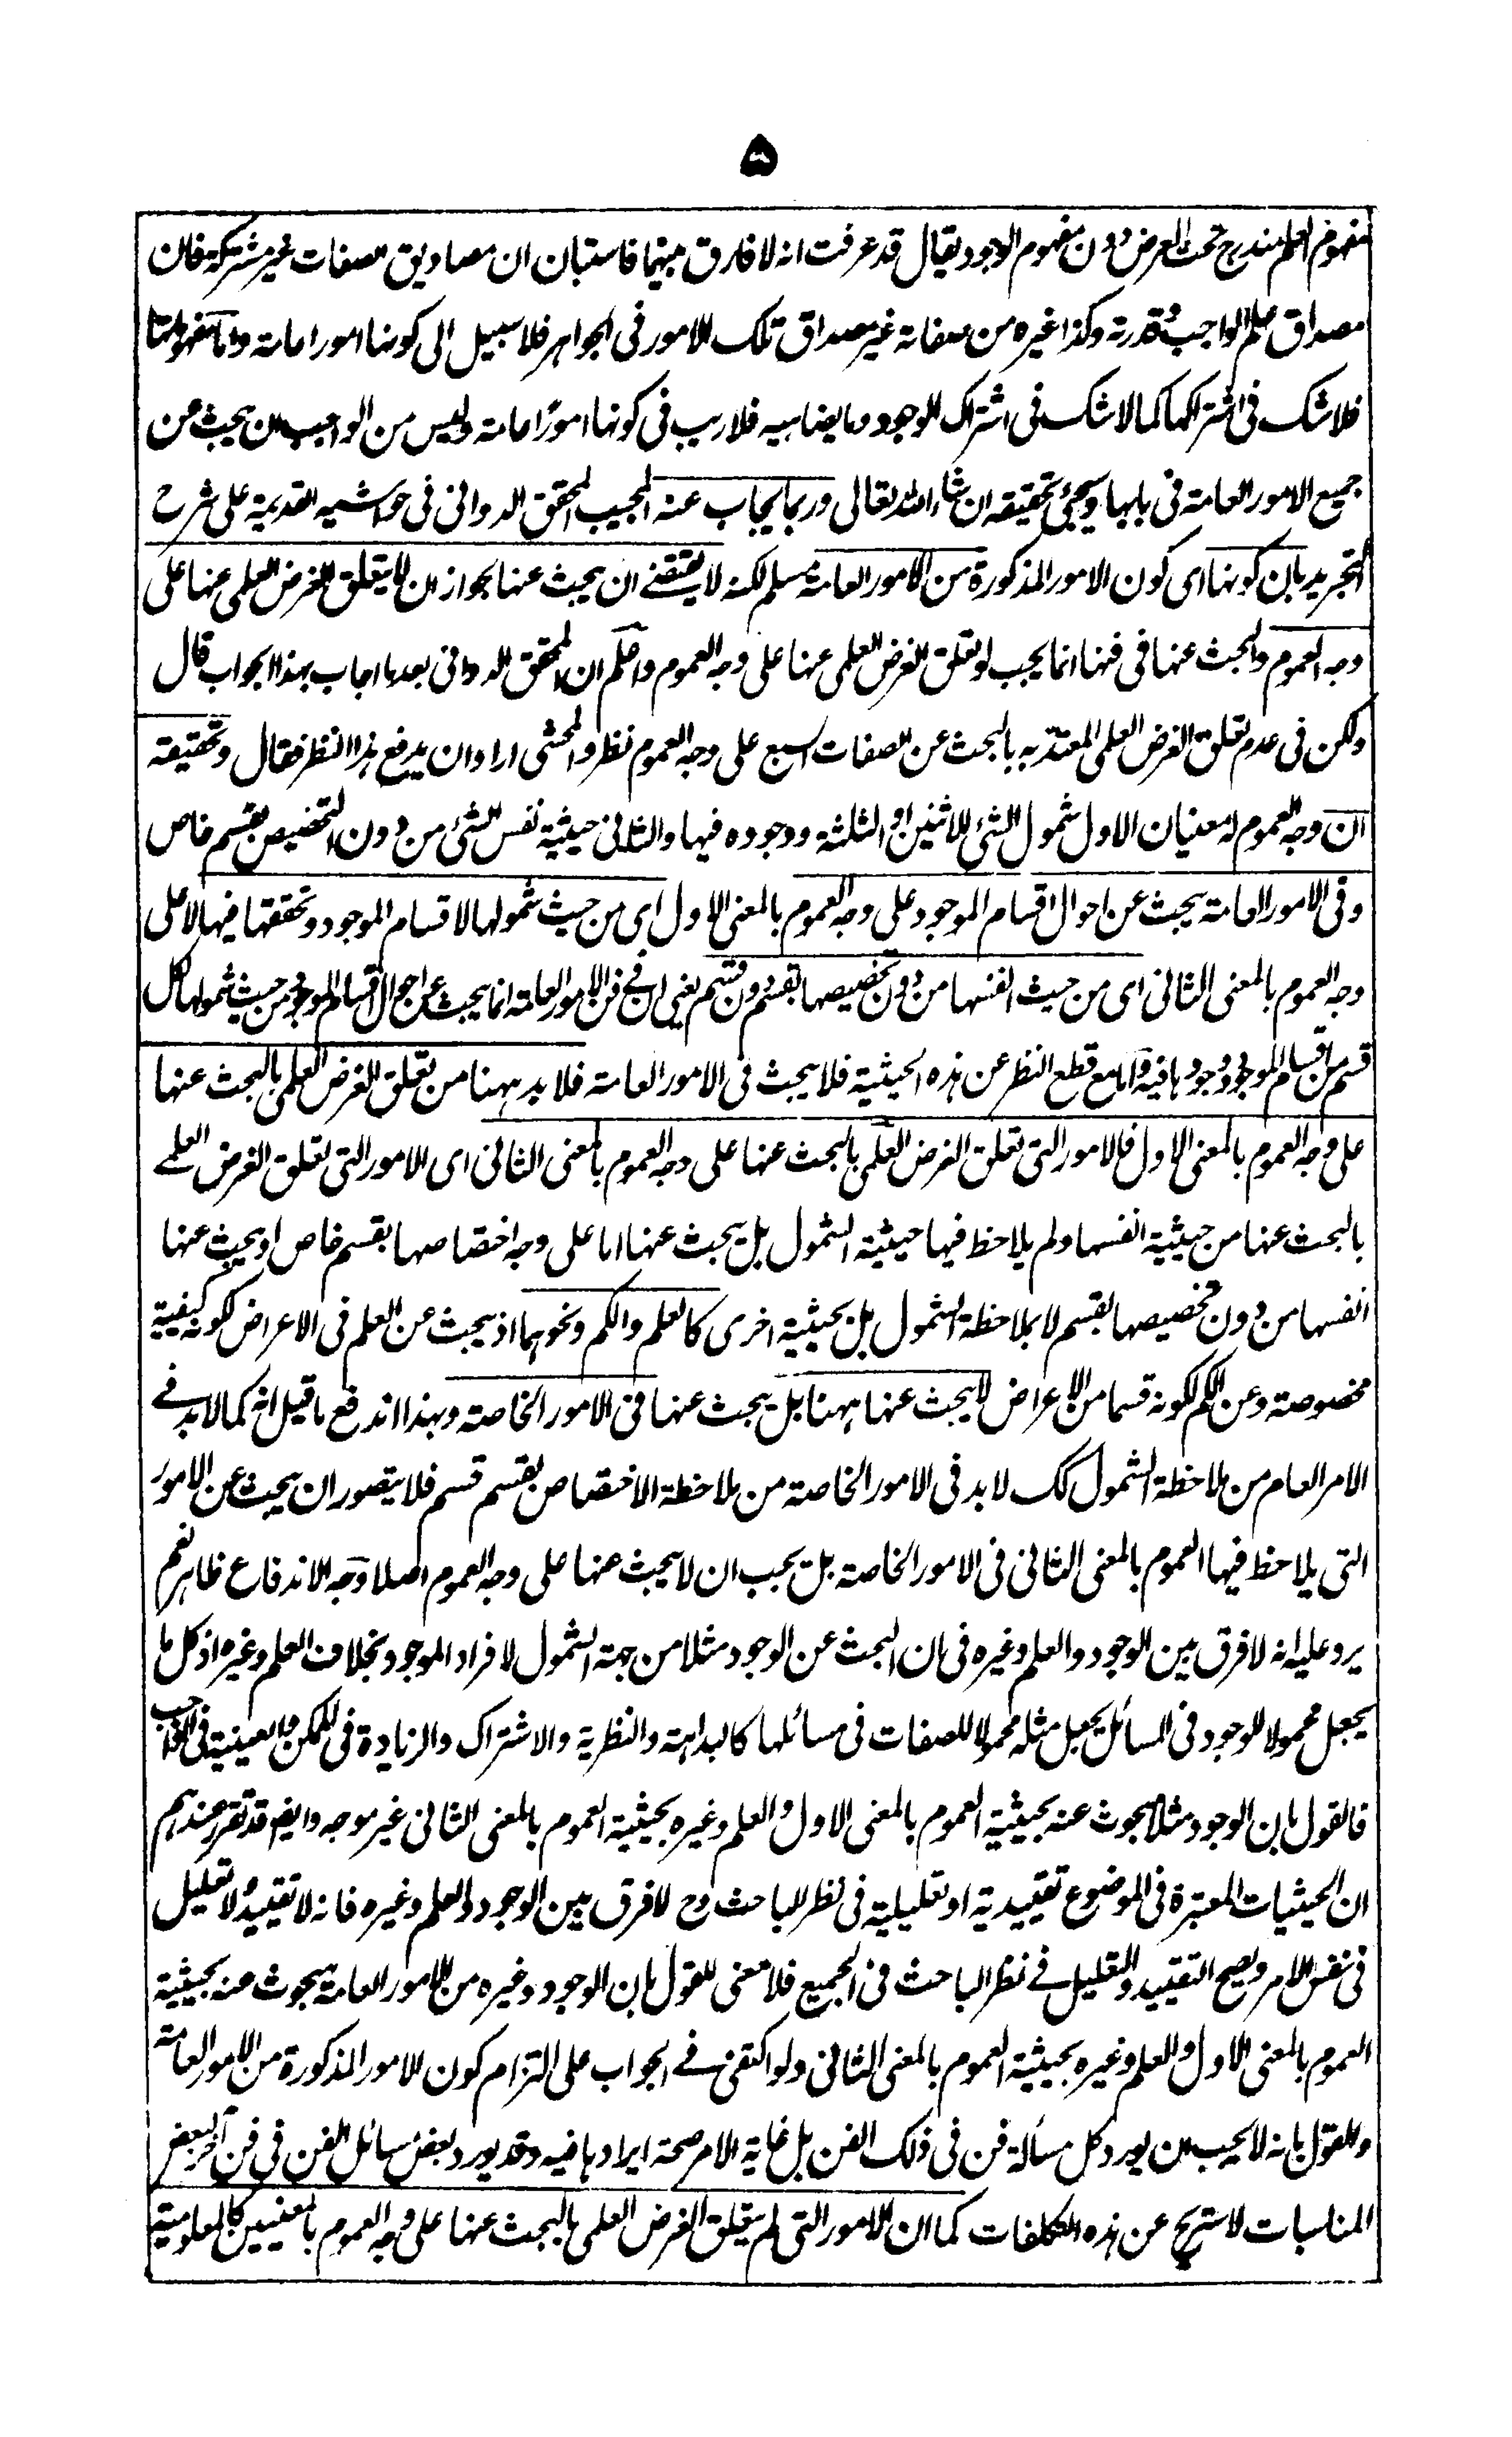 ٥
مفهوم العلم مندرج تحت العرض دون مفهوم الوجود يقال قد عرفت انه لا فارق بينهما فاستبان ان مصاديق صفات غير مشتركة فان
مصداق علم الواجب وقدرته وكذا غيره من صفاته غير مصداق تلك الامور فى الجواهر فلا سبيل الى كونها امورا عامة واما مفهوماتها
فلا شك فى اشتراكها كما لا شك فى اشتراك الوجود وما يضاهيه فلا ريب فى كونها امورا عامة وليس من الواجب ان يبحث عن
جميع الامور العامة فى بابها وسيجئ تحقيقه ان شاء الله تعالى وربما يجاب عنه المجيب المحقق الدوانى فى حواشيه القديمة على شرح
التجريد بان كونها اى كون الامور المذكورة من الامور العامة مسلم لكنه لا يقتضى ان يبحث عنها لجواز ان لا يتعلق الغرض العلمى عنها على
وجه العموم والبحث عنها فى فنها انما يجب لو تعلق الغرض العلمى عنها على وجه العموم واعلم ان المحقق الدوانى بعد ما اجاب بهذا الجواب قال
ولكن فى عدم تعلق الغرض العلمى المعتد به بالبحث عن الصفات السبع على وجه العموم نظر والمحشى اراد ان يدفع هذا النظر فقال وتحقيقه
ان وجه العموم له معنيان الاول شمول الشئ للاثنين او الثلثة ووجوده فيها والثانى حيثية نفس الشئ من دون التخصيص بقسم خاص
وفى الامور العامة يبحث عن احوال اقسام الموجود على وجه العموم بالمعنى الاول اى من حيث شمولها لاقسام الموجود وتحققها فيها لا على
وجه العموم بالمعنى الثانى اى من حيث انفسها من دون تخصيصها بقسم دون قسم يعنى ان فى فن الامور العامة انما يبحث عن احوال اقسام الموجود من حيث شمولها كل
قسم من اقسام الموجود ووجودها فيه واما مع قطع النظر عن هذه الحيثية فلا يبحث فى الامور العامة فلا بد ههنا من تعلق الغرض العلمى بالبحث عنها
على وجه العموم بالمعنى الاول فالامور التى تعلق الغرض العلمى بالبحث عنها على وجه العموم بالمعنى الثانى اى الامور التى تعلق الغرض العلمے
بالبحث عنها من حيثية انفسها ولم يلاحظ فيها حيثية الشمول بل يبحث عنها اما على وجه اختصاصها بقسم خاص او يبحث عنها
انفسها من دون تخصيصها بقسم لا بملاحظة الشمول بل بحيثية اخرى كالعلم والكم ونحوهما اذ يبحث عن العلم فى الاعراض لكونه كيفية
مخصوصة وعن الكم لكونه قسما من الاعراض لا يبحث عنها ههنا بل يبحث عنها فى الامور الخاصة وبهذا اندفع ما قيل انه كما لا بد فے
الامر العام من ملاحظة الشمول كك لا بد فى الامور الخاصة من ملاحظة الاختصاص بقسم قسم فلا يتصور ان يبحث عن الامور
التى يلاحظ فيها العموم بالمعنى الثانى فى الامور الخاصة بل يجب ان لا يبحث عنها على وجه العموم اصلا وجه الاندفاع ظاهر نعم
يرد عليه انه لا فرق بين الوجود والعلم وغيره فى ان البحث عن الوجود مثلا من جهة الشمول لافراد الموجود بخلاف العلم وغيره اذ كل ما
يجعل محمولا للوجود فى المسائل يجعل مثله محمولا للصفات فى مسائلها كالبداهة والنظرية والاشتراك والزيادة فى الممكن والعينية فى الواجب
فالقول بان الوجود مثلا مبحوث عنه بحيثية العموم بالمعنى الاول والعلم وغيره بحيثية العموم بالمعنى الثانى غير موجه وايضا قد تقرر عندهم
ان الحيثيات المعتبرة فى الموضوع تقييدية او تعليلية فى نظر الباحث وح لا فرق بين الوجود والعلم وغيره فانه لا تقييد ولا تعليل
فى نفس الامر ويصح التقييد والتعليل فے نظر الباحث فى الجميع فلا معنى للقول بان الوجود وغيره من الامور العامة مبحوث عنه بحيثية
العموم بالمعنى الاول والعلم وغيره بحيثية العموم بالمعنى الثانى ولو اكتفى فے الجواب على التزام كون الامور المذكورة من الامور العامة
والقول بانه لا يجب ان يورد كل مسألة فن فى ذلك الفن بل غاية الامر صحة ايرادها فيه وقد يورد بعض مسائل الفن فى فن آخر لبعض
المناسبات لاستريح عن هذه التكلفات كما ان الامور التى لم يتعلق الغرض العلمى بالبحث عنها على وجه العموم بالمعنيين كالمعلومية